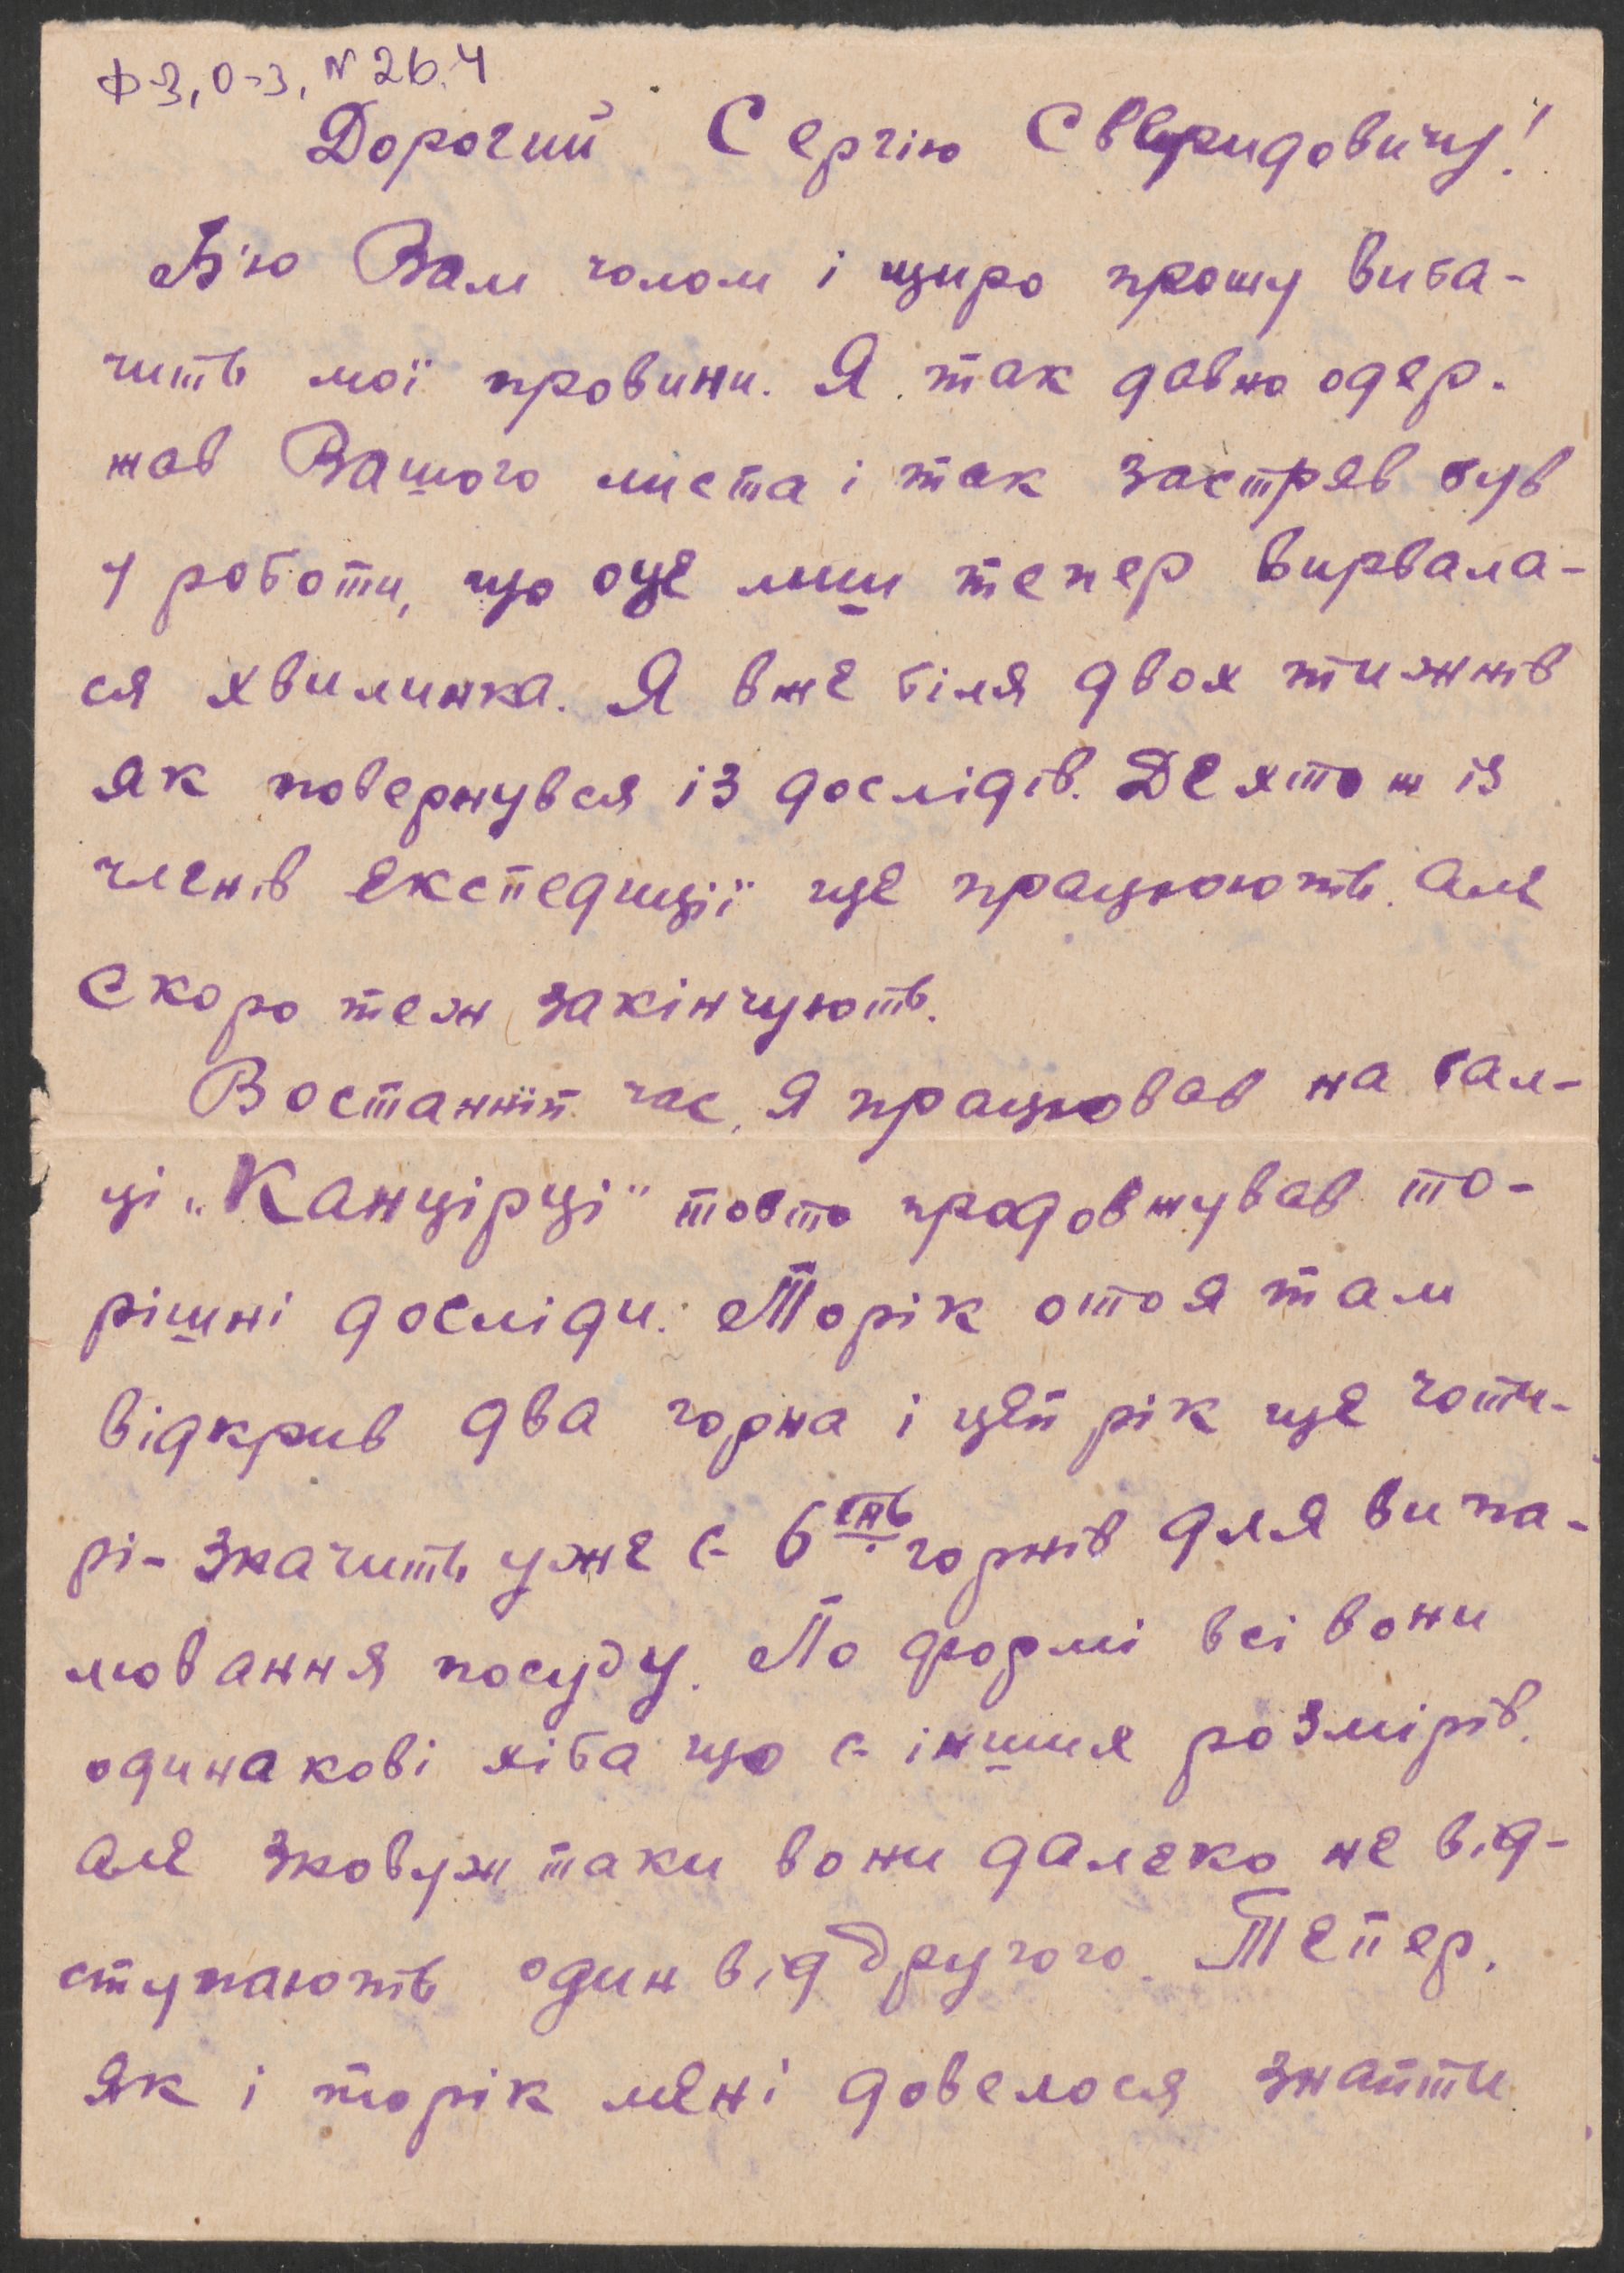 Ф-3, О-3, № 26.4
Дорогий Сергію Свиридовичу!
Б'ю Вам чолом і щиро прошу виба-
чить мої провини. Я так давно одер-
жав Вашого листа і так застряв був
у роботи, що оце лиш тепер вирвала-
ся хвилинка. Я вже біля двох тижнів
як повернувся із дослідів. Дехто ж із
членів експедиції ще працюють. Але
скоро теж закінчують.
В останній час, я працював на бал-
ці „Канцірці" тобто продовжував то-
рішні досліди. Торік ото я там
відкрив два горна і цей рік ще чоти-
рі - значить уже є 6сть горнів для випа-
лювання посуду. По формі всі вони
одинакові хіба що є інших розмірів.
Але знову ж таки вони далеко не від-
ступають один від другого. Тепер,
як і торік мені довелося знайти